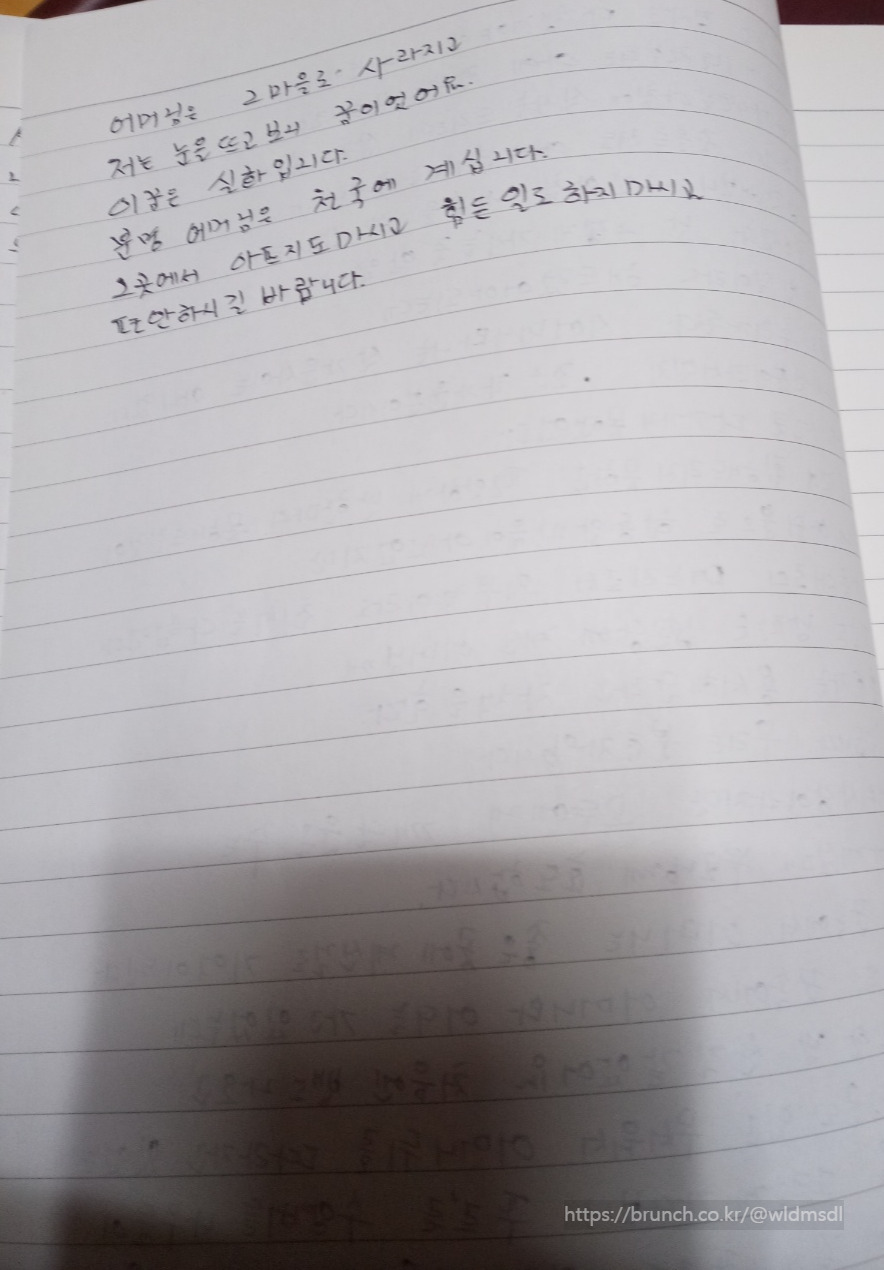 어머님은 그마을로 사라지고
저는 눈을 뜨고 보니 꿈이었어요.
이꿈은 실화입니다.
분명 어머님은 천국에 계십니다.
그곳에서 아프지도 마시고 힘든 일도 하지 마시고
편안하시길 바랍니다.
https://brunch.co.kr/@wldmsdl